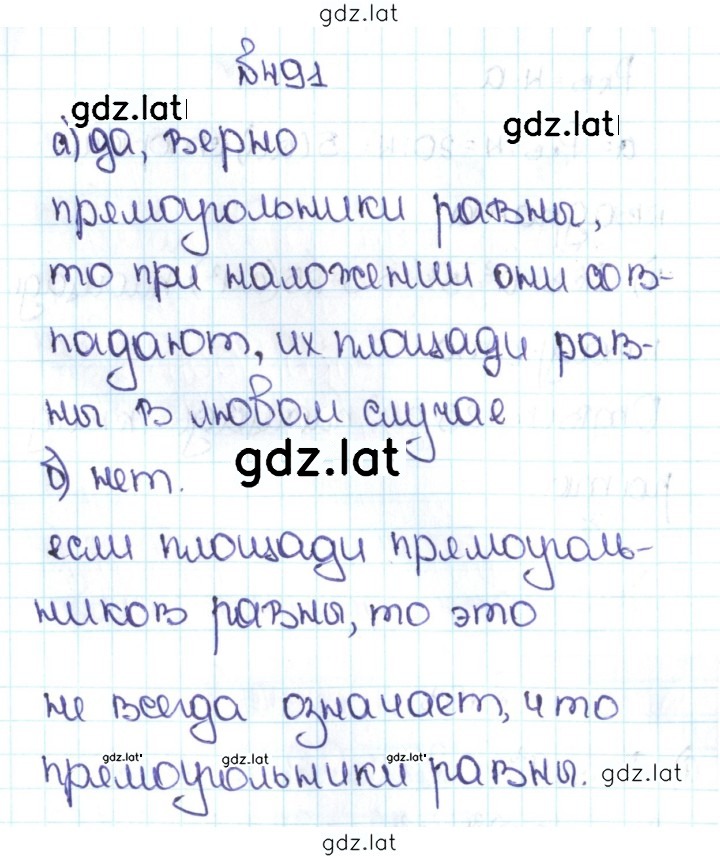 gdz.lat
№491
gdz.lat
gdz.lat
а) да, верно
прямоугольники равны,
то при наложении они сов-
падают, их площади рав-
ны в любом случае
gdz.lat
б) нет.
если площади прямоуголь-
ников равны, то это
не всегда означает, что
gdz.lat gdz.lat gdz.lat
прямоугольники равны. gdz.lat
gdz.lat